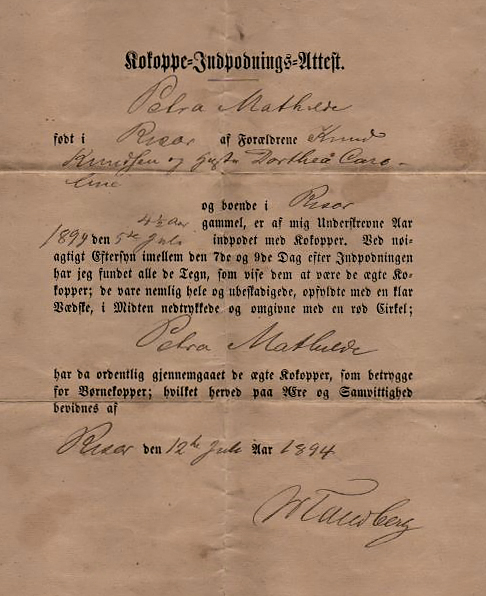 Kokoppe-Indpodnings-Attest.
Petra Mathilde
født i Risør af Forældrene Knud
Knudsen og Dorthea Caro-
line
og boende i Risør
4½ Aar gammel, er af mig Underskrevne Aar
1894 den 5te Juli indpodet med Kokopper. Ved nøi-
agtigt Eftersyn imellem den 7de og 9de Dag efter Indpodningen
har jeg fundet alle de Tegn, som vise dem at være de ægte Ko-
kopper; de vare nemlig hele og ubeskadigede, opfyldte med en klar
Vædske, i Midten nedtrykkede og omgivne med en rød Cirkel;
Petra Mathilde
har da ordentlig gjennemgaaet de ægte Kokopper, som betrygge
for Børnekopper; hvilket herved paa Ære og Samvittighed
bevidnes af
Risør den 12te Juli Aar 1894